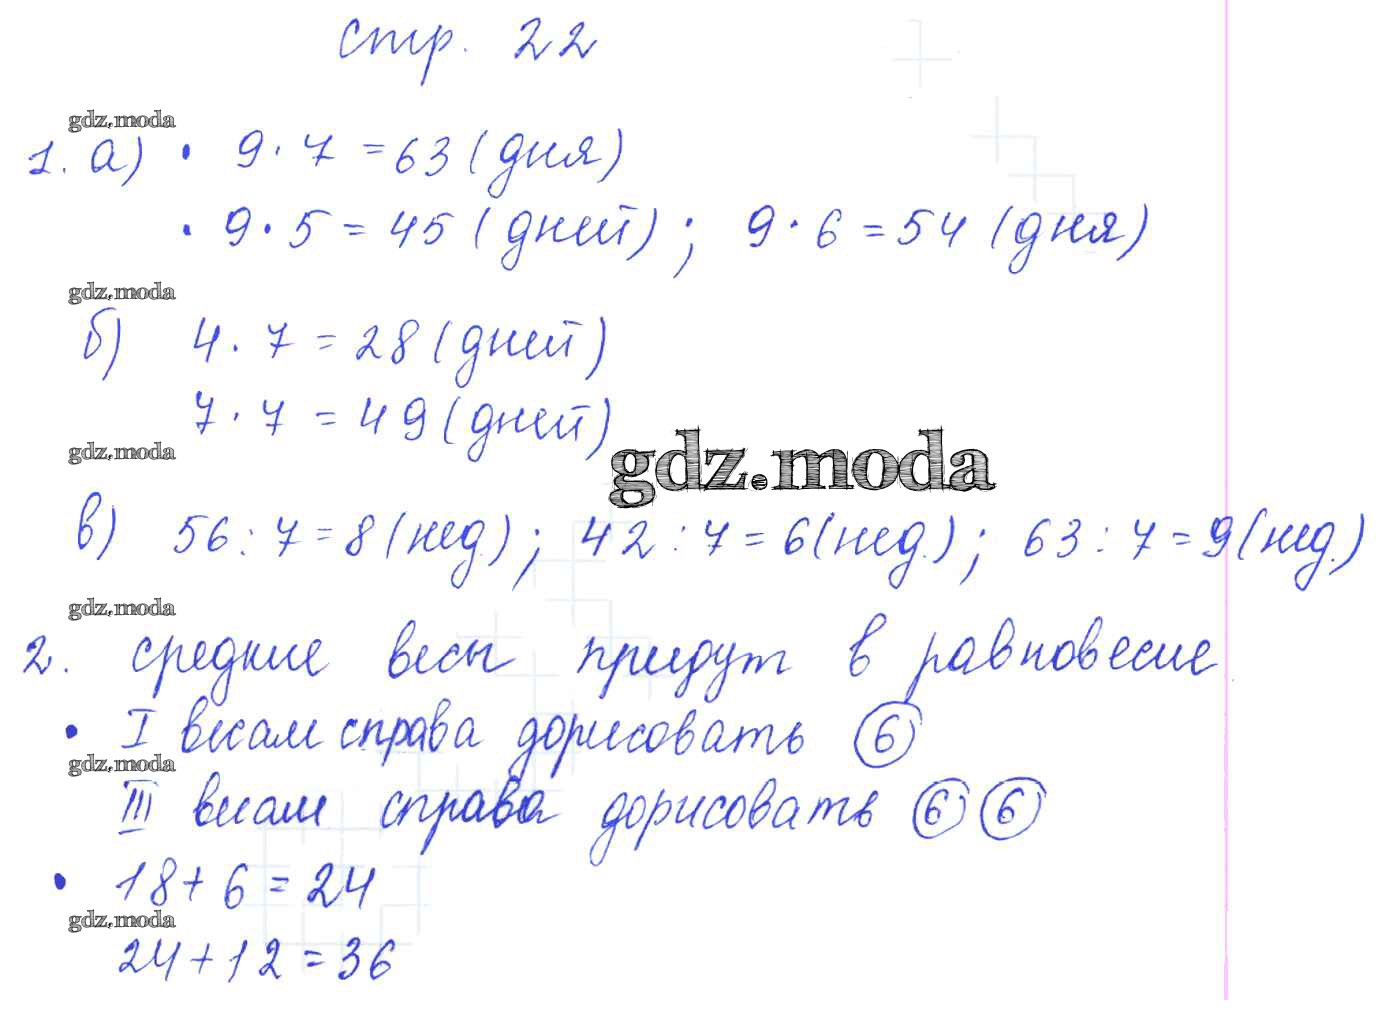 стр. 22
gdz.moda
1. а) • 9 · 7 = 63 (дня)
• 9 · 5 = 45 (дней); 9 · 6 = 54 (дня)
gdz.moda
б) 4 · 7 = 28 (дней)
7 · 7 = 49 (дней)
gdz.moda
gdz.moda
в) 56 : 7 = 8 (нед.); 42 : 7 = 6 (нед.); 63 : 7 = 9 (нед.)
gdz.moda
2. средние весы придут в равновесие
• I весам справа дорисовать 6
gdz.moda
III весам справа дорисовать 6 6
• 18 + 6 = 24
gdz.moda
24 + 12 = 36